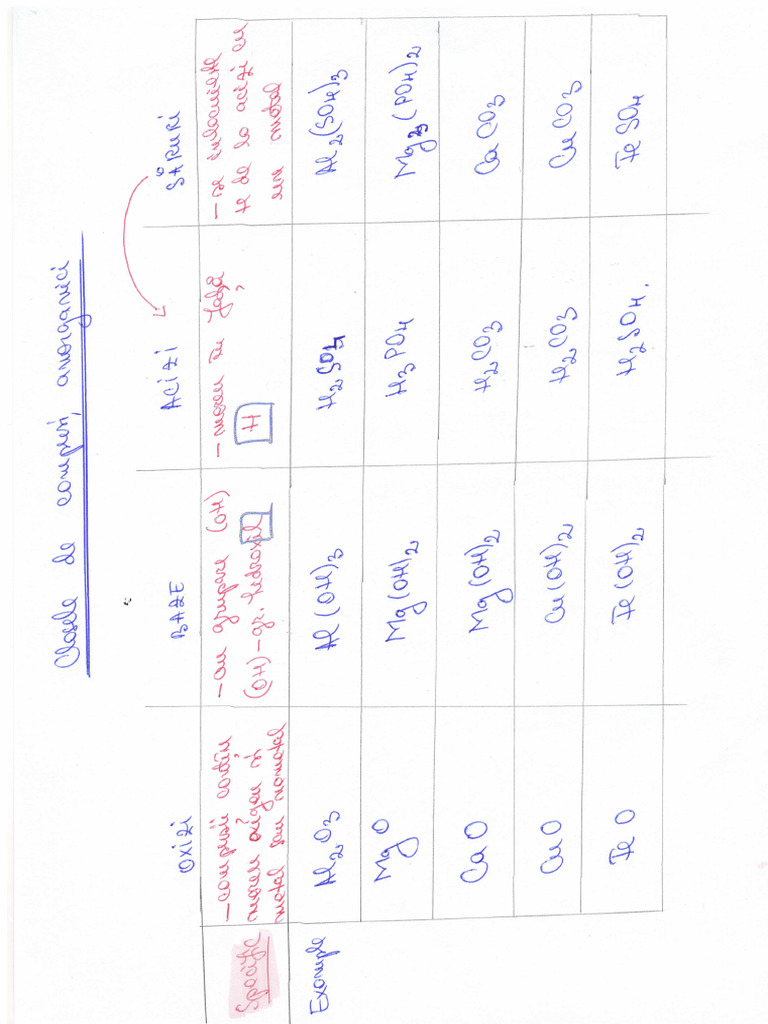 Clasele de compuși anorganici
OXIZI BAZE ACIZI SĂRURI
Specific
-compușii conțin
mereu oxigen și
metal sau nemetal
-au grupare (OH)
(OH)-gr. hidroxil
-mereu în față
H
-se înlocuiește
H de la acizi cu
un metal
Exemple
Al2O3 Al(OH)3 H2SO4 Al2(SO4)3
MgO Mg(OH)2 H3PO4 Mg3(PO4)2
CaO Mg(OH)2 H2CO3 CaCO3
CuO Cu(OH)2 H2CO3 CuCO3
FeO Fe(OH)2 H2SO4. FeSO4